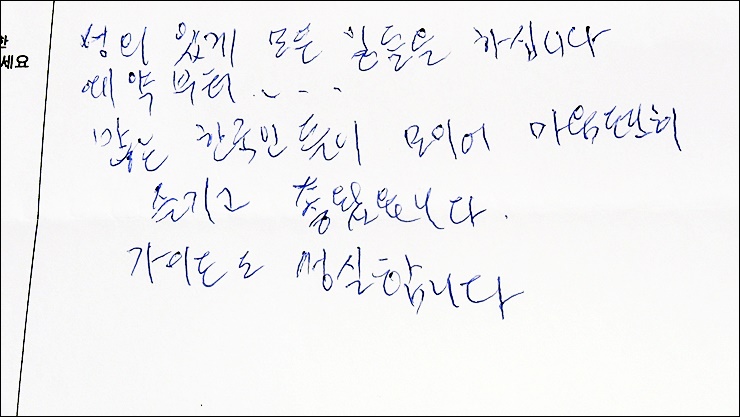 한
세요
성의 있게 모든 일들을 하십니다
예약부터 . . .
많은 한국인들이 모이어 마음편히
즐기고
가이드도 성실합니다